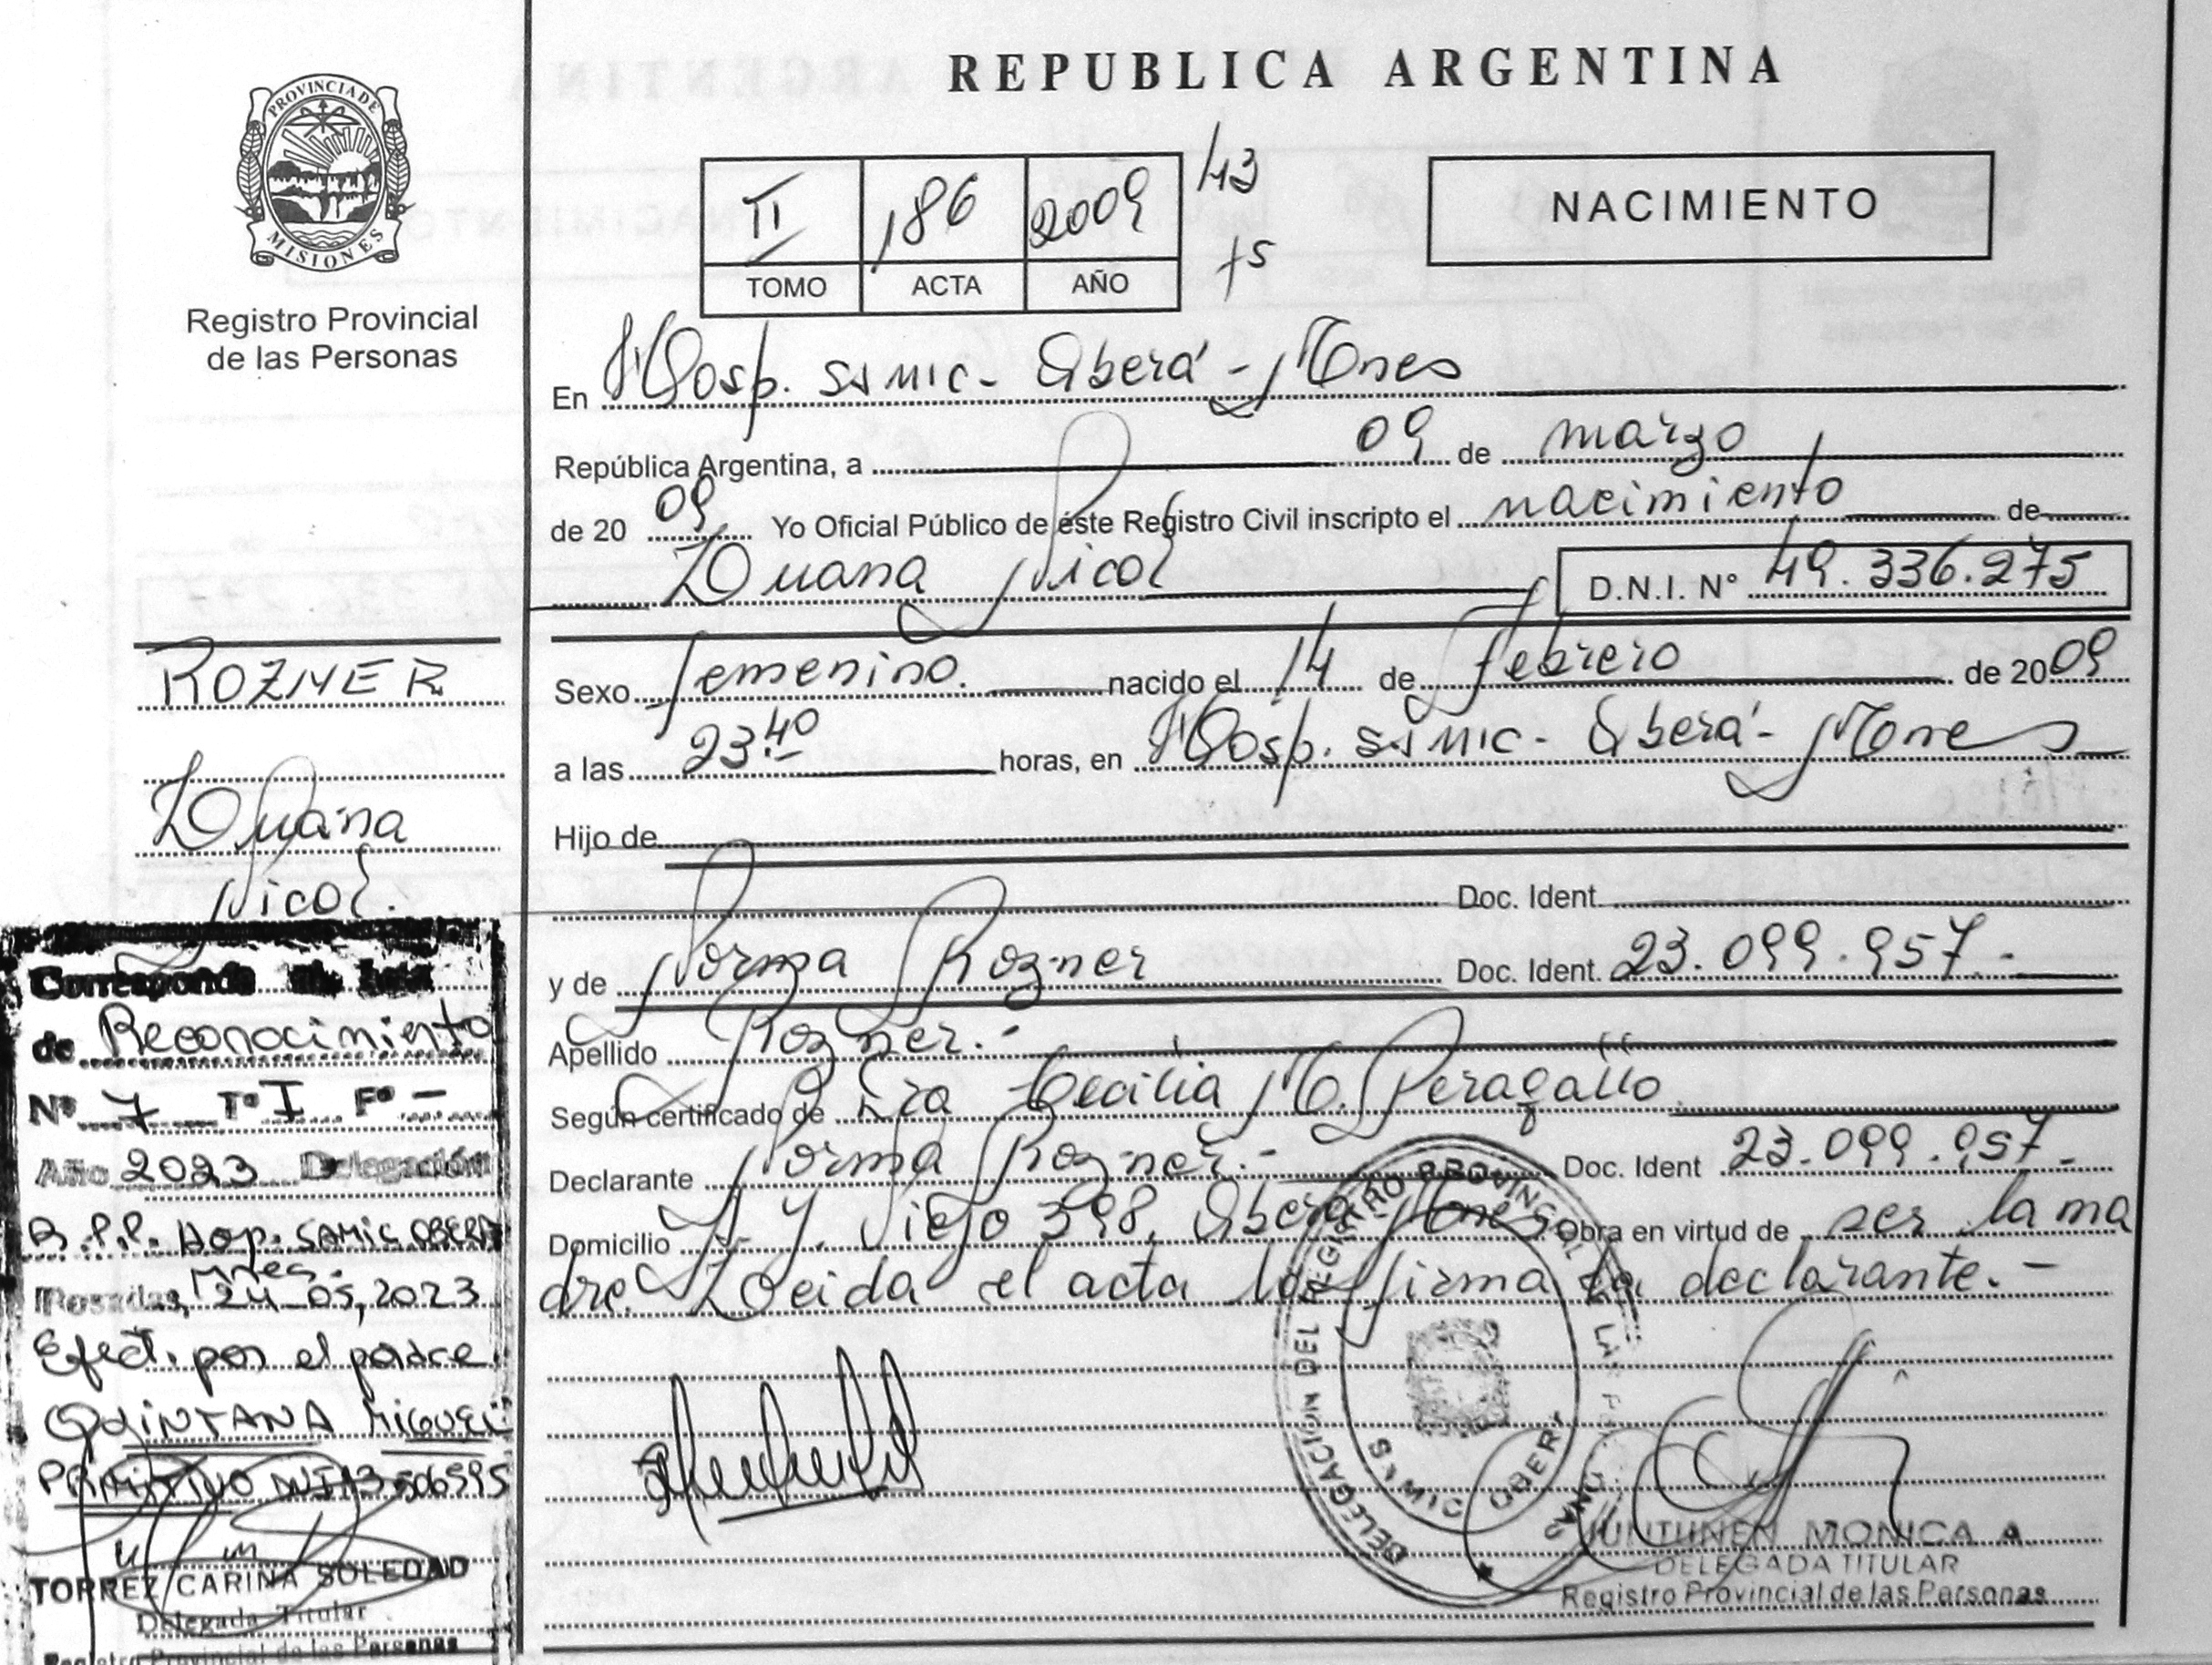 REPUBLICA ARGENTINA
PROVINCIA DE
MISIONES
Registro Provincial
de las Personas
II 186 2009 43
TOMO ACTA AÑO 75
NACIMIENTO
En Hosp. SAMIC - Oberá - Mnes
República Argentina, a 09 de marzo
de 20 09 Yo Oficial Público de éste Registro Civil inscripto el nacimiento de
Luana Nicol D.N.I. Nº 49.336.275
ROZNER
Luana
Nicol.
Sexo femenino. nacido el 14 de febrero de 2009
a las 23:40 horas, en Hosp. SAMIC - Oberá - Mnes
Hijo de
Doc. Ident.
y de Norma Rozner Doc. Ident. 23.099.957.-
Apellido Rozner.-
Según certificado de Dra Cecilia M. Peragallo
Declarante Norma Rozner.- Doc. Ident 23.099.957.-
Domicilio Viejo 398, Oberá Mnes Obra en virtud de ser la ma
dre. Leida el acta la firma la declarante.-
Corresponde
de Reconocimiento
Nº 7 Tº I Fº -
Año 2023 Delegación
R.P.P. Hop. SAMIC OBERA
Mnes.
Posadas, 24-05, 2023
Efect. por el padre
QUINTANA MIGUEL
PRIMITIVO DNI 13506595
TORREZ CARINA SOLEDAD
Delegada Titular
Registro Provincial de las Personas
DELEGACION DEL REGISTRO PROVINCIAL DE LAS PERSONAS
OBERA
JUNTUNEN MONICA A.
DELEGADA TITULAR
Registro Provincial de las Personas